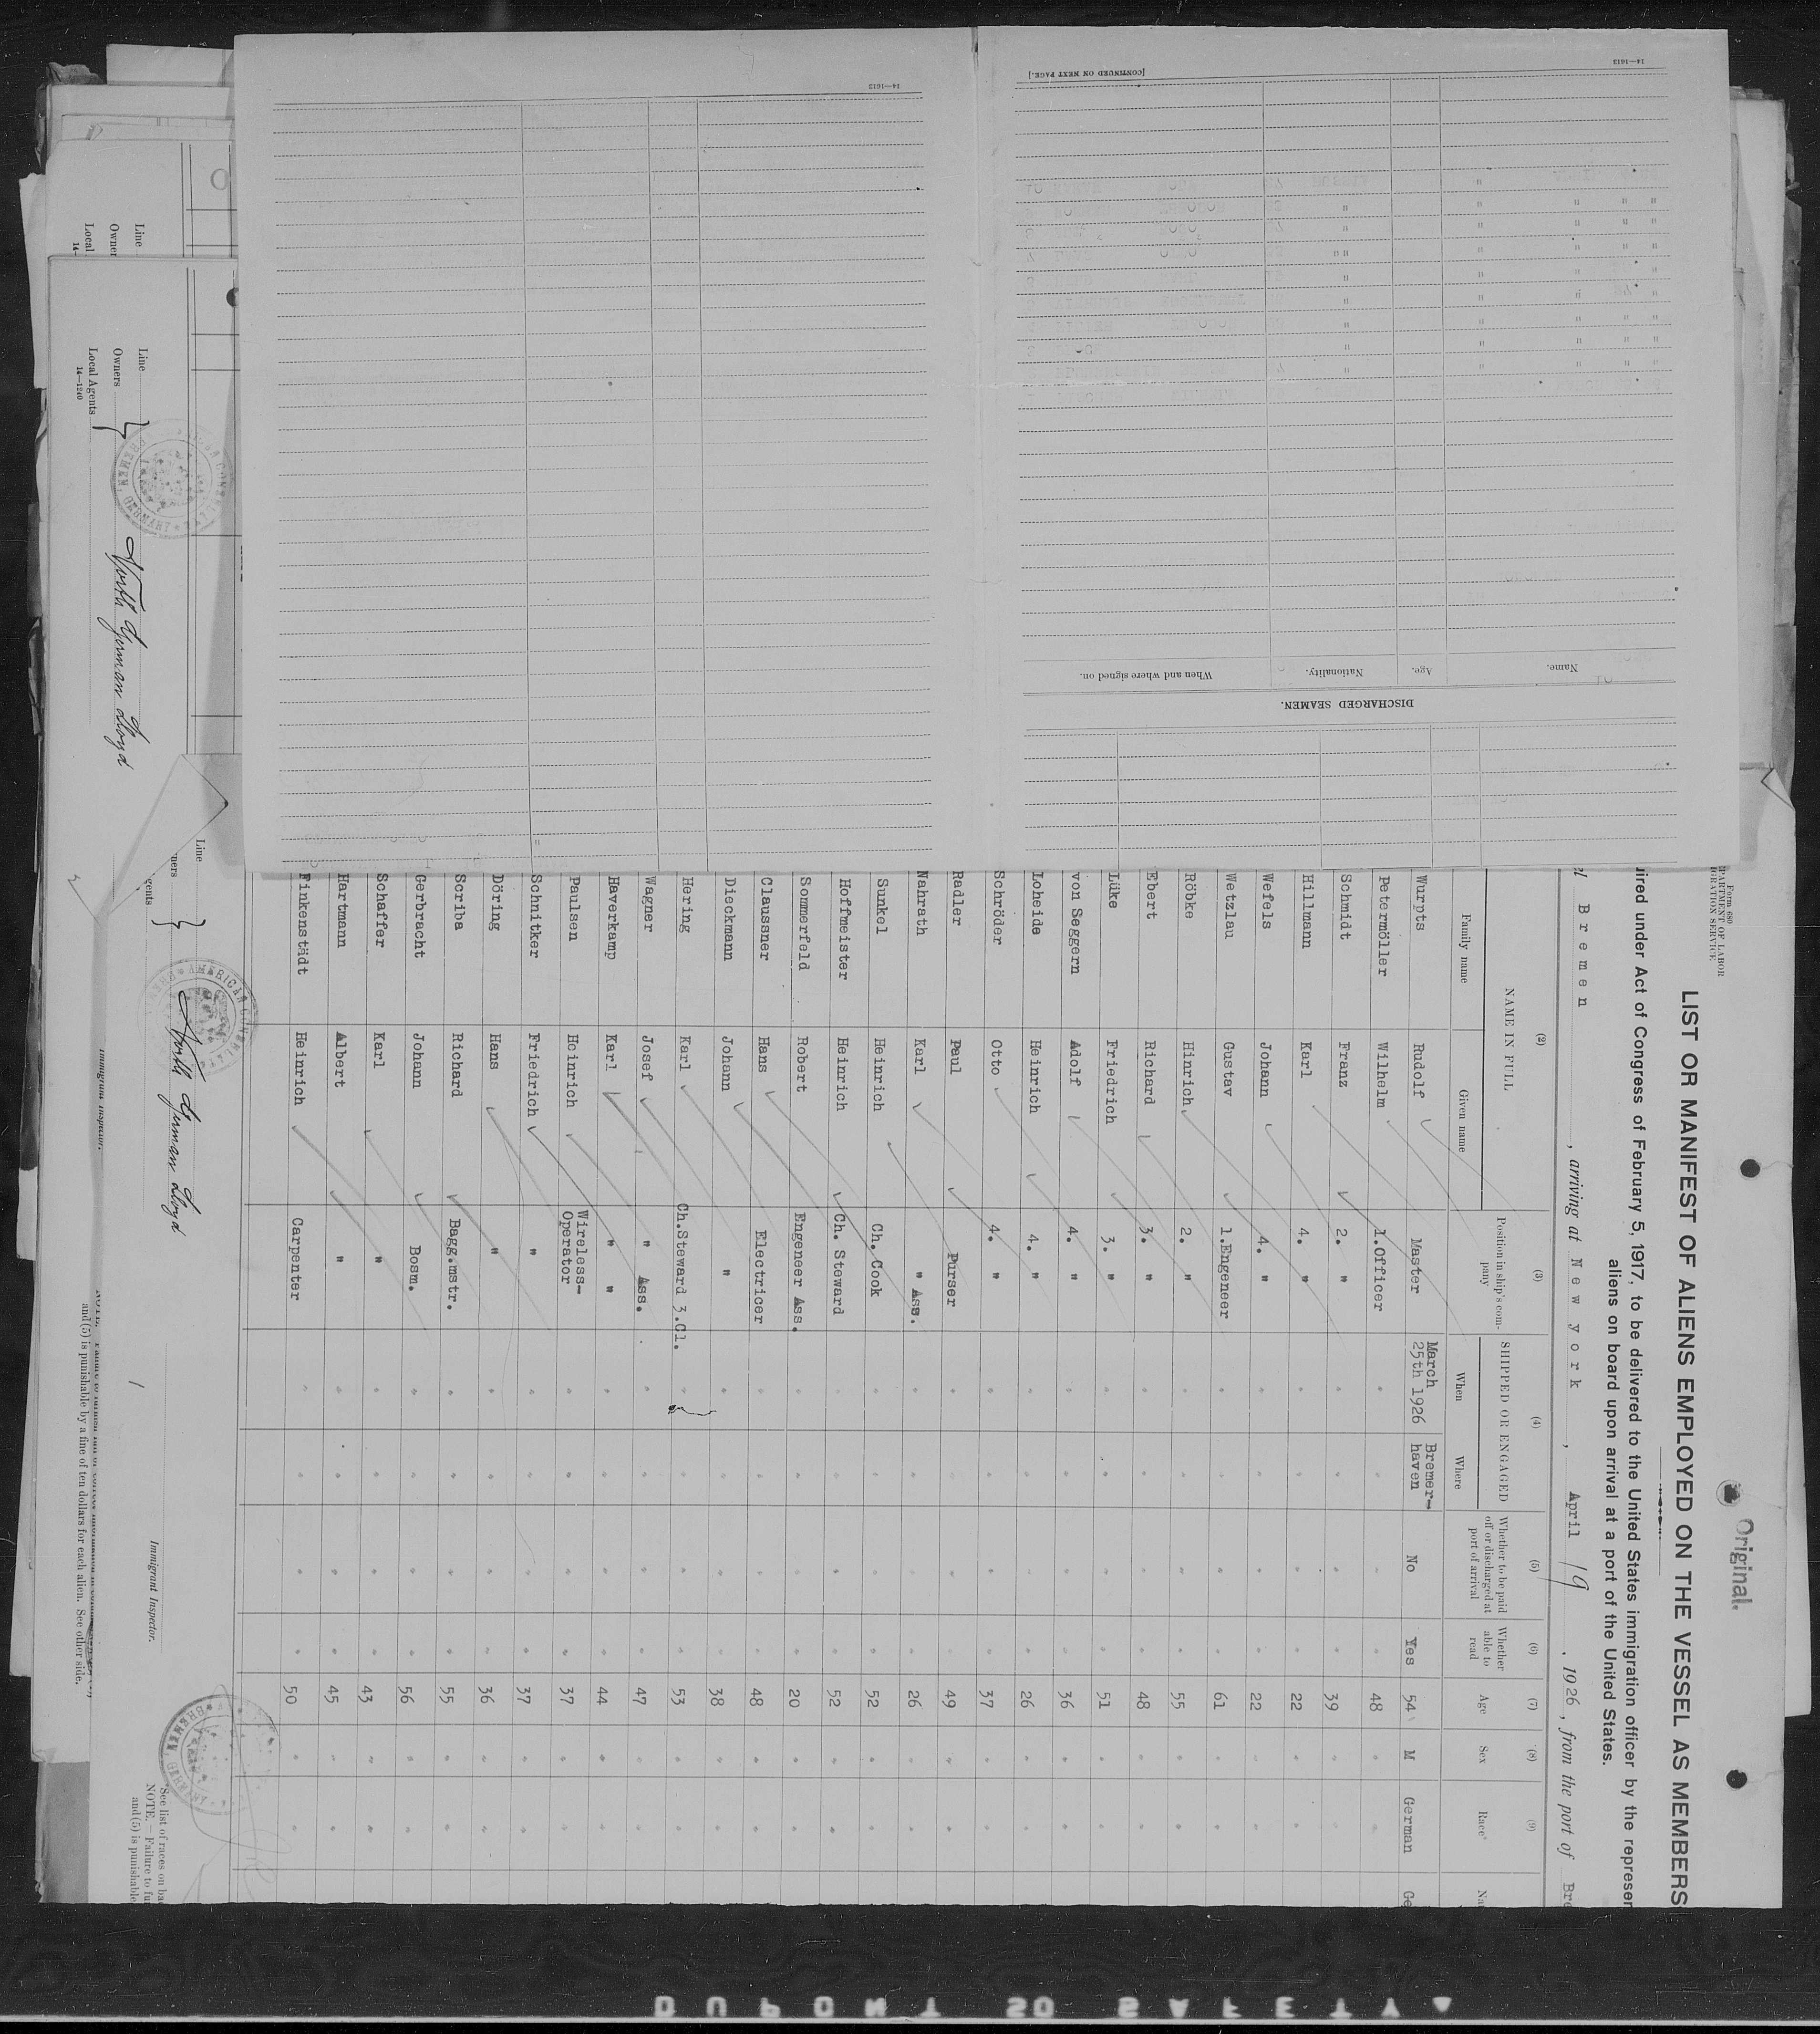 Original.
Form 680
LIST OR MANIFEST OF ALIENS EMPLOYED ON THE VESSEL AS MEMBERS
under Act of Congress of February 5, 1917, to be delivered to the United States immigration officer by the
aliens on board upon arrival at a port of the United States.
Bremen , arriving at New york , April 19 , 1926 , from the port of
(2) (3) (4) (5) (6) (7) (8) (9)
NAME IN FULL Position in ship's company SHIPPED OR ENGAGED Whether to be paid off or discharged at port of arrival Whether able to read Age Sex Race*
Family name Given name When Where
Wurpts Rudolf Master March 25th 1926 Bremer-haven No Yes 54 M German
Petermöller Wilhelm 1.Officer " " " " 48 " "
Schmidt Franz 2. " " " " " 39 " "
Hillmann Karl 4. " " " " " 22 " "
Wefels Johann 4. " " " " " 22 " "
Wetzlau Gustav 1.Engeneer " " " " 61 " "
Röbke Hinrich 2. " " " " " 55 " "
Ebert Richard 3. " " " " " 48 " "
Lüke Friedrich 3. " " " " " 51 " "
von Seggern Adolf 4. " " " " " 36 " "
Loheide Heinrich 4. " " " " " 26 " "
Schröder Otto 4. " " " " " 37 " "
Radler Paul Purser " " " " 49 " "
Nahrath Karl " Ass. " " " " 26 " "
Sunkel Heinrich Ch. Cook " " " " 52 " "
Hoffmeister Heinrich Ch. Steward " " " " 52 " "
Sommerfeld Robert Engeneer Ass. " " " " 20 " "
Claussner Hans Electricer " " " " 48 " "
Dieckmann Johann " " " " " 38 " "
Hering Karl Ch.Steward 3.Cl. " " " " 53 " "
Wagner Josef " Ass. " " " " 47 " "
Haverkamp Karl " " " " " " 44 " "
Paulsen Heinrich Wireless-Operator " " " " 37 " "
Schnitker Friedrich " " " " " 37 " "
Döring Hans " " " " " 36 " "
Scriba Richard Bagg.mstr. " " " " 55 " "
Gerbracht Johann Bosm. " " " " 56 " "
Schaffer Karl " " " " " 43 " "
Hartmann Albert " " " " " 45 " "
Finkenstädt Heinrich Carpenter " " " " 50 " "
Line
North German Lloyd
AMERICAN CONSULATE
Immigrant Inspector.
*See list of races on
NOTE.—Failure to
and (5) is punishable
Immigrant Inspector.
and (5) is punishable by a fine of ten dollars for each alien. See other side.
Line
Owners
Local Agents
14—1240
North German Lloyd
BREMEN, GERMANY
Line
Owner
Local
14-
14—1613
[CONTINUED ON NEXT PAGE.]
14—1613
DISCHARGED SEAMEN.
Name. Age. Nationality. When and where signed on.
DUPONT SAFETY